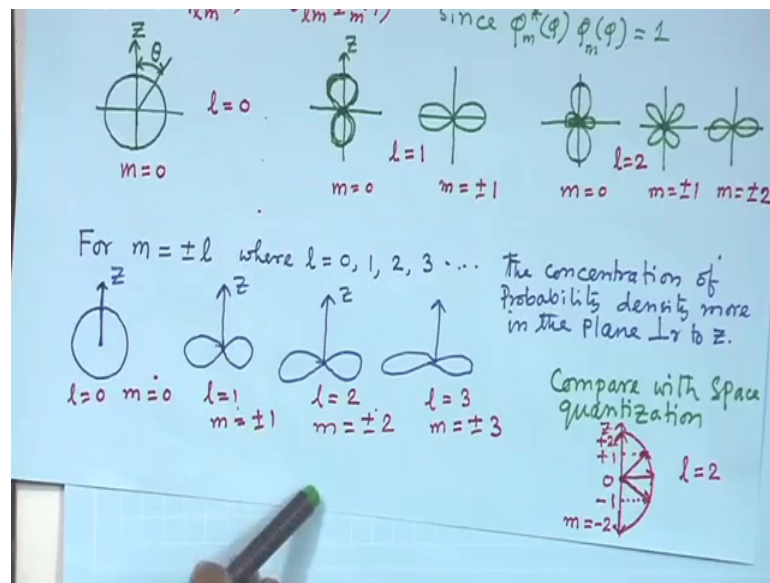 since φ*m(φ) φm(φ) = 1
z
θ
l=0
m=0
z
l=1
m=0
m=±1
l=2
m=0
m=±1
m=±2
For m = ±l where l=0, 1, 2, 3 ....
The concentration of
Probability density more
in the plane ⊥r to z.
z
l=0 m=0
z
l=1
m=±1
z
l=2
m=±2
l=3
m=±3
Compare with Space
quantization
z
+2
+1
0
-1
m=-2
l=2